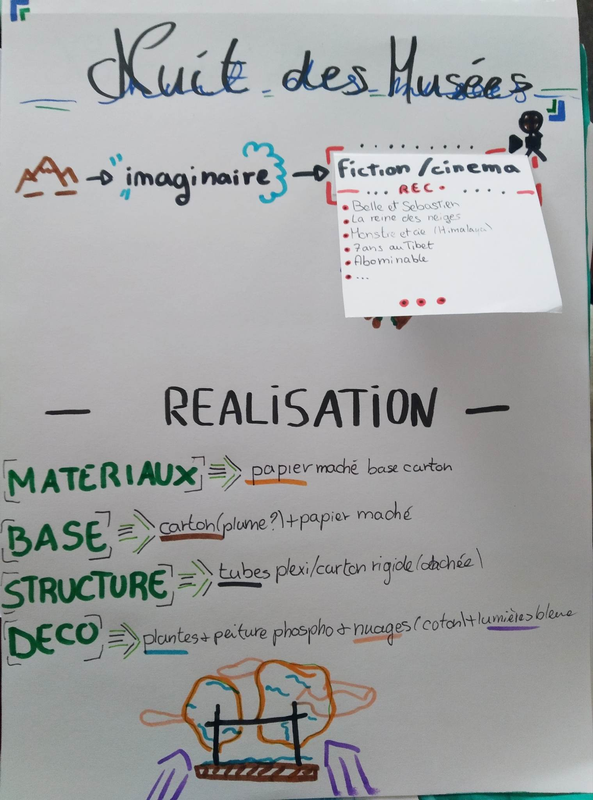 Nuit des Musées
"imaginaire" fiction/cinema
REC
Belle et Sebastien
La reine des neiges
Monstre et cie (Himalaya)
7ans au Tibet
Abominable
...
— REALISATION —
MATERIAUX papier maché base carton
BASE carton(plume?)+papier maché
STRUCTURE tubes plexi/carton rigide (cachée)
DECO plantes+peiture phospho+nuages(coton)+lumières bleue